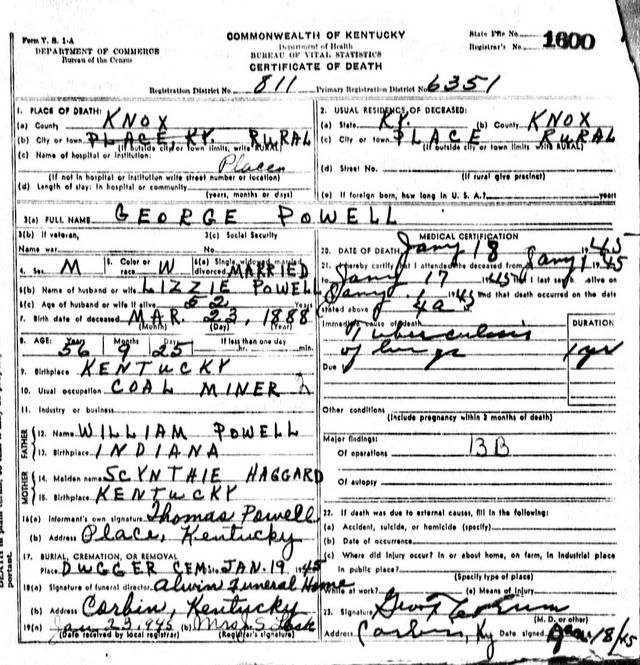 Form V. S. 1-A
DEPARTMENT OF COMMERCE
Bureau of the Census
COMMONWEALTH OF KENTUCKY
Department of Health
BUREAU OF VITAL STATISTICS
CERTIFICATE OF DEATH
State File No.
Registrar's No. 1600
Registration District No. 811 Primary Registration District No. 6351
1. PLACE OF DEATH:
(a) County KNOX
(b) City or town PLACE, KY. RURAL
(If outside city or town limits, write RURAL)
(c) Name of hospital or institution:
Place
(If not in hospital or institution write street number or location)
(d) Length of stay: In hospital or community
(years, months or days)
2. USUAL RESIDENCE OF DECEASED:
(a) State KY. (b) County KNOX
(c) City or town PLACE RURAL
(If outside city or town limits write RURAL)
(d) Street No.
(If rural give precinct)
(e) If foreign born, how long in U. S. A.? years
3(a) FULL NAME GEORGE POWELL
3(b) If veteran,
Name war
3(c) Social Security
No.
4. Sex M
5. Color or
race W
6(a) Single, widowed, married
divorced MARRIED
6(b) Name of husband or wife LIZZIE POWELL
6(c) Age of husband or wife if alive 52 Years
7. Birth date of deceased MAR. 23, 1888
(Month) (Day) (Year)
8. AGE: Years Months Days If less than one day
56 9 25 hr. min.
9. Birthplace KENTUCKY
10. Usual occupation COAL MINER
11. Industry or business
FATHER
12. Name WILLIAM POWELL
13. Birthplace INDIANA
MOTHER
14. Maiden name SCYNTHIE HAGGARD
15. Birthplace KENTUCKY
16(a) Informant's own signature Thomas Powell
(b) Address Place, Kentucky
17. BURIAL, CREMATION, OR REMOVAL
Place DUGGER CEM. Date JAN. 19 1945
18(a) Signature of funeral director Funeral Home
(b) Address Corbin, Kentucky
19(a) Jan 23, 1945 (b) Mrs.
(Date received by local registrar) (Registrar's signature)
MEDICAL CERTIFICATION
20. DATE OF DEATH Jany 18 1945
21. I hereby certify that I attended the deceased from Jany 1 1945
to Jany 17 1945 that I last saw alive on
Jany 1945 and that death occurred on the date
stated above 4 a
Immediate cause of death
Tuberculosis
of lungs 1 yr
DURATION
Due
Other conditions
(Include pregnancy within 3 months of death)
Major findings:
Of operations 13B
Of autopsy
22. If death was due to external causes, fill in the following:
(a) Accident, suicide, or homicide (specify)
(b) Date of occurrence
(c) Where did injury occur? In or about home, on farm, in industrial place
in public place?
(Specify type of place)
While at work? (e) Means of Injury
23. Signature
(M. D. or other)
Address Corbin, Ky Date signed Jan 18/45